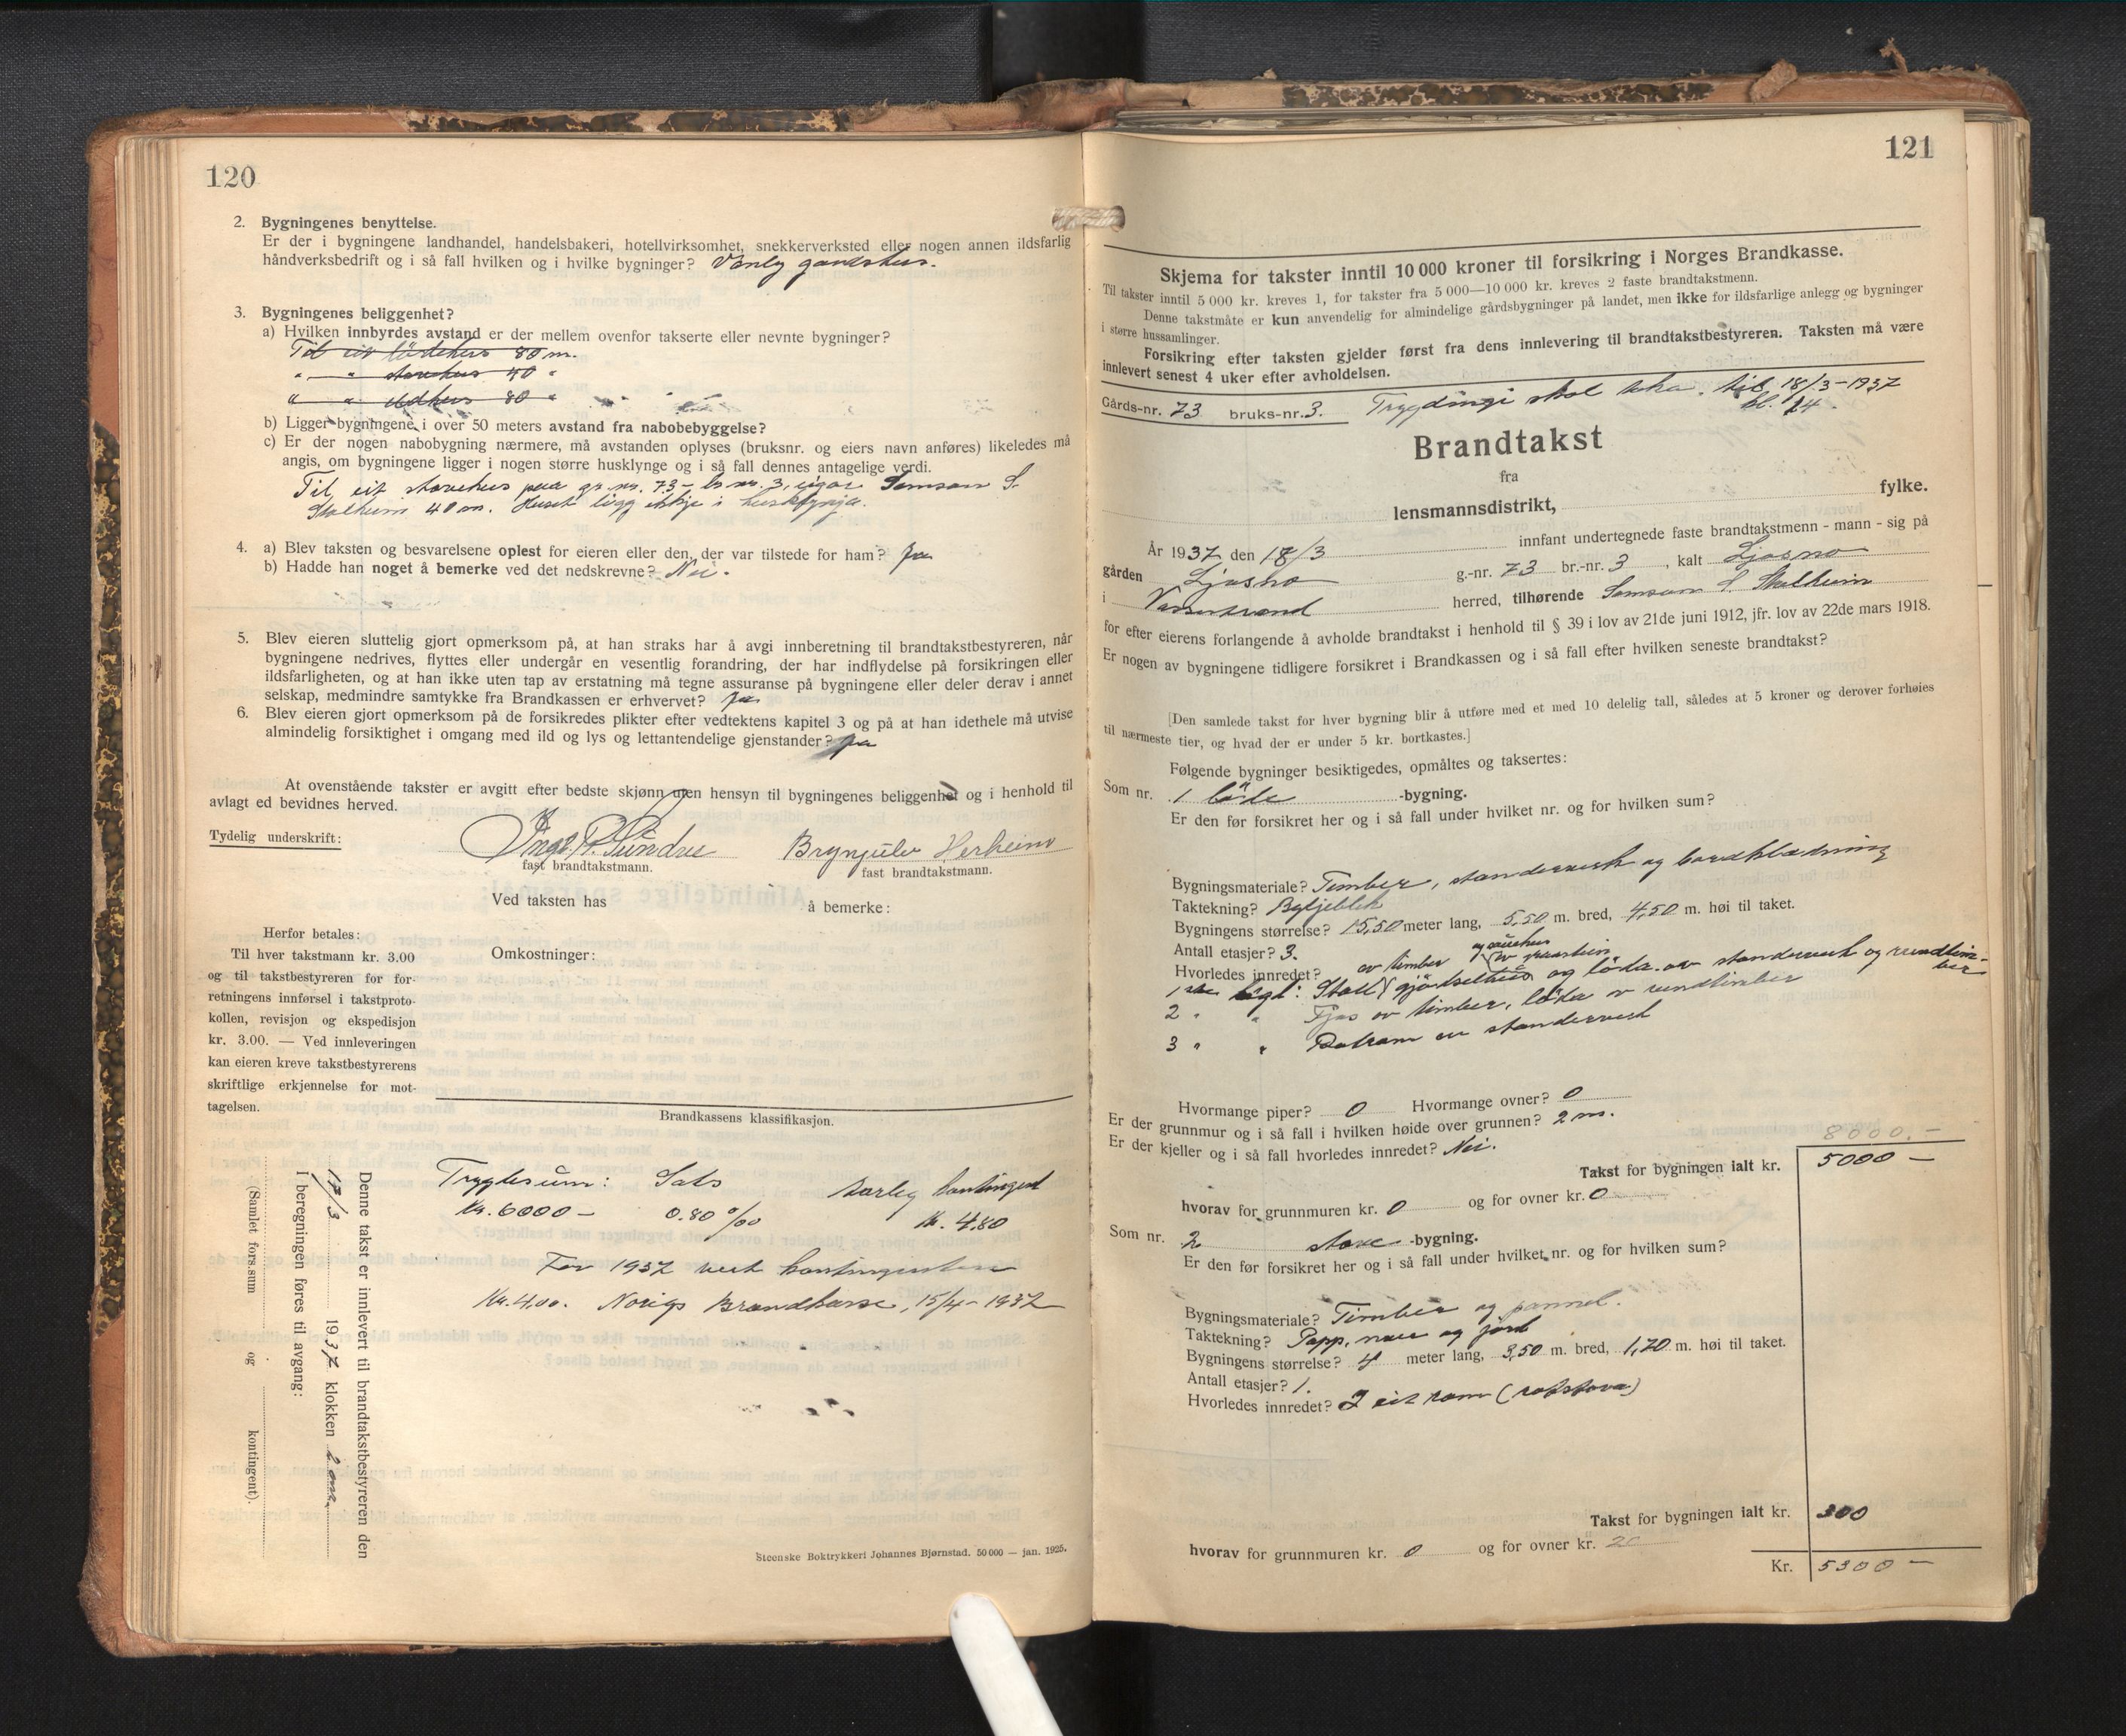 120
2. Bygningenes benyttelse.
Er der i bygningene landhandel, handelsbakeri, hotellvirksomhet, snekkerverksted eller nogen annen ildsfarlig
håndverksbedrift og i så fall hvilken og i hvilke bygninger? Vanleg gardshus.
3. Bygningenes beliggenhet?
a) Hvilken innbyrdes avstand er der mellem ovenfor takserte eller nevnte bygninger?
Til eit lödehus 80 m.
" — " stovehus 40 "
" " eldhus 80 "
b) Ligger bygningene i over 50 meters avstand fra nabobebyggelse?
c) Er der nogen nabobygning nærmere, må avstanden oplyses (bruksnr. og eiers navn anføres) likeledes må
angis, om bygningene ligger i nogen større husklynge og i så fall dennes antagelige verdi.
Til eit stovehus paa gr. nr. 73 - br. nr. 3, eigar Samson S.
Stalheim 40 m. Huset ligg ikkje i husklyngja.
4. a) Blev taksten og besvarelsene oplest for eieren eller den, der var tilstede for ham? Ja
b) Hadde han noget å bemerke ved det nedskrevne? Nei.
5. Blev eieren sluttelig gjort opmerksom på, at han straks har å avgi innberetning til brandtakstbestyreren, når
bygningene nedrives, flyttes eller undergår en vesentlig forandring, der har indflydelse på forsikringen eller
ildsfarligheten, og at han ikke uten tap av erstatning må tegne assuranse på bygningene eller deler derav i annet
selskap, medmindre samtykke fra Brandkassen er erhvervet? Ja
6. Blev eieren gjort opmerksom på de forsikredes plikter efter vedtektens kapitel 3 og på at han idethele må utvise
almindelig forsiktighet i omgang med ild og lys og lettantendelige gjenstander? Ja
At ovenstående takster er avgitt efter bedste skjønn uten hensyn til bygningenes beliggenhet og i henhold til
avlagt ed bevidnes herved.
Tydelig underskrift: Ingv. R. Sundve Brynjulv Herheim
fast brandtakstmann. fast brandtakstmann.
Ved taksten has å bemerke:
Herfor betales:
Til hver takstmann kr. 3.00
og til takstbestyreren for for-
retningens innførsel i takstproto-
kollen, revisjon og ekspedisjon
kr. 3.00. — Ved innleveringen
kan eieren kreve takstbestyrerens
skriftlige erkjennelse for mot-
tagelsen.
Omkostninger:
Brandkassens klassifikasjon.
Trygdesum: Sats Aarleg kontingent
Kr. 6000 — 0.80 ‰ Kr. 4.80
For 1937 vert kontingenten
Kr. 4.00. Norigs Brandkasse, 15/4 - 1937
Denne takst er innlevert til brandtakstbestyreren den
18/3 1937 klokken 2 em.
I beregningen føres til avgang:
(Samlet fors.sum og kontingent).
Steenske Boktrykkeri Johannes Bjørnstad. 50 000 — jan. 1925.
121
Skjema for takster inntil 10 000 kroner til forsikring i Norges Brandkasse.
Til takster inntil 5 000 kr. kreves 1, for takster fra 5 000—10 000 kr. kreves 2 faste brandtakstmenn.
Denne takstmåte er kun anvendelig for almindelige gårdsbygninger på landet, men ikke for ildsfarlige anlegg og bygninger
i større hussamlinger.
Forsikring efter taksten gjelder først fra dens innlevering til brandtakstbestyreren. Taksten må være
innlevert senest 4 uker efter avholdelsen.
Gårds-nr. 73 bruks-nr. 3. Trygdingi skal taka til 18/3 - 1937
kl. 14.
Brandtakst
fra
lensmannsdistrikt, fylke.
År 1937 den 18/3 innfant undertegnede faste brandtakstmenn - mann - sig på
gården Ljosno g.-nr. 73 br.-nr. 3, kalt Ljosno
i Vossestrand herred, tilhørende Samson S. Stalheim
for efter eierens forlangende å avholde brandtakst i henhold til § 39 i lov av 21de juni 1912, jfr. lov av 22de mars 1918.
Er nogen av bygningene tidligere forsikret i Brandkassen og i så fall efter hvilken seneste brandtakst?
[Den samlede takst for hver bygning blir å utføre med et med 10 delelig tall, således at 5 kroner og derover forhøies
til nærmeste tier, og hvad der er under 5 kr. bortkastes.]
Følgende bygninger besiktigedes, opmåltes og taksertes:
Som nr. 1 löde -bygning.
Er den før forsikret her og i så fall under hvilket nr. og for hvilken sum?
Bygningsmateriale? Timber, standerverk og bordklædning
Taktekning? Bylgjeblekk
Bygningens størrelse? 15,50 meter lang, 5,50 m. bred, 4,50 m. høi til taket.
Antall etasjer? 3.
Hvorledes innredet? av timber og sauehus av graastein
1 ste högd: Stall gjödselhus og löda av standerverk og rundtim-
ber
2 " " Fjos av timber, löda av rundtimber
3 " " av standerverk
Hvormange piper? 0 Hvormange ovner? 0
Er der grunnmur og i så fall i hvilken høide over grunnen? 2 m.
Er der kjeller og i så fall hvorledes innredet? Nei.
8000.—
Takst for bygningen ialt kr. 5000 —
hvorav for grunnmuren kr. 0 og for ovner kr. 0
Som nr. 2 stove -bygning.
Er den før forsikret her og i så fall under hvilket nr. og for hvilken sum?
Bygningsmateriale? Timber og pannel.
Taktekning? Papp, næver og jord
Bygningens størrelse? 4 meter lang, 3,50 m. bred, 1,70 m. høi til taket.
Antall etasjer? 1.
Hvorledes innredet? I eit rom (rokstova)
Takst for bygningen ialt kr. 300
hvorav for grunnmuren kr. 0 og for ovner kr. 20
Kr. 5300 —